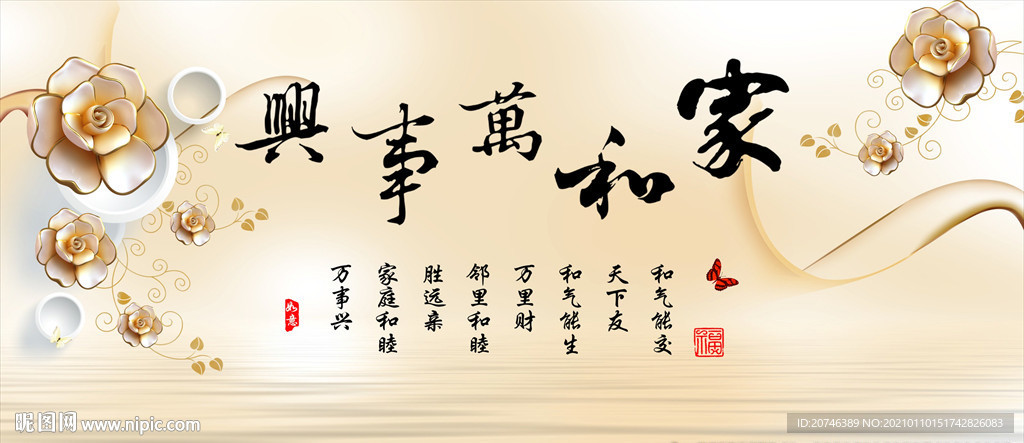 家和萬事興
和气能交
天下友
和气能生
万里财
邻里和睦
胜远亲
家庭和睦
万事兴
如意
福
昵图网 www.nipic.com
ID:20746389 NO:20210110151742826083